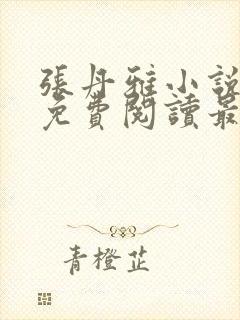 張丹雅小說
免費閱讀最
青橙芷